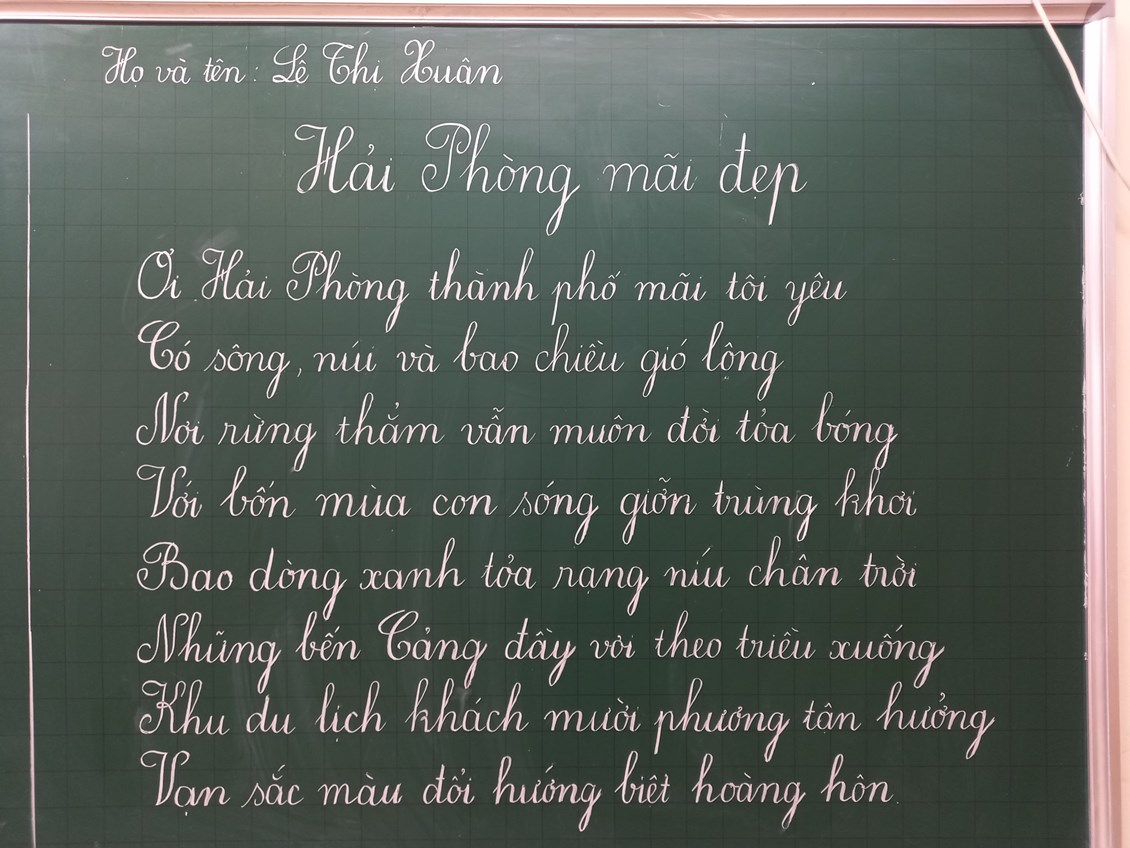 Họ và tên: Lê Thị Xuân
Hải Phòng mãi đẹp
Ơi Hải Phòng thành phố mãi tôi yêu
Có sông, núi và bao chiều gió lộng
Nơi rừng thắm vẫn muôn đời tỏa bóng
Với bốn mùa con sóng giỡn trùng khơi
Bao dòng xanh tỏa rạng níu chân trời
Những bến Cảng đầy vơi theo triều xuống
Khu du lịch khách mười phương tận hưởng
Vạn sắc màu đổi hướng biệt hoàng hôn.